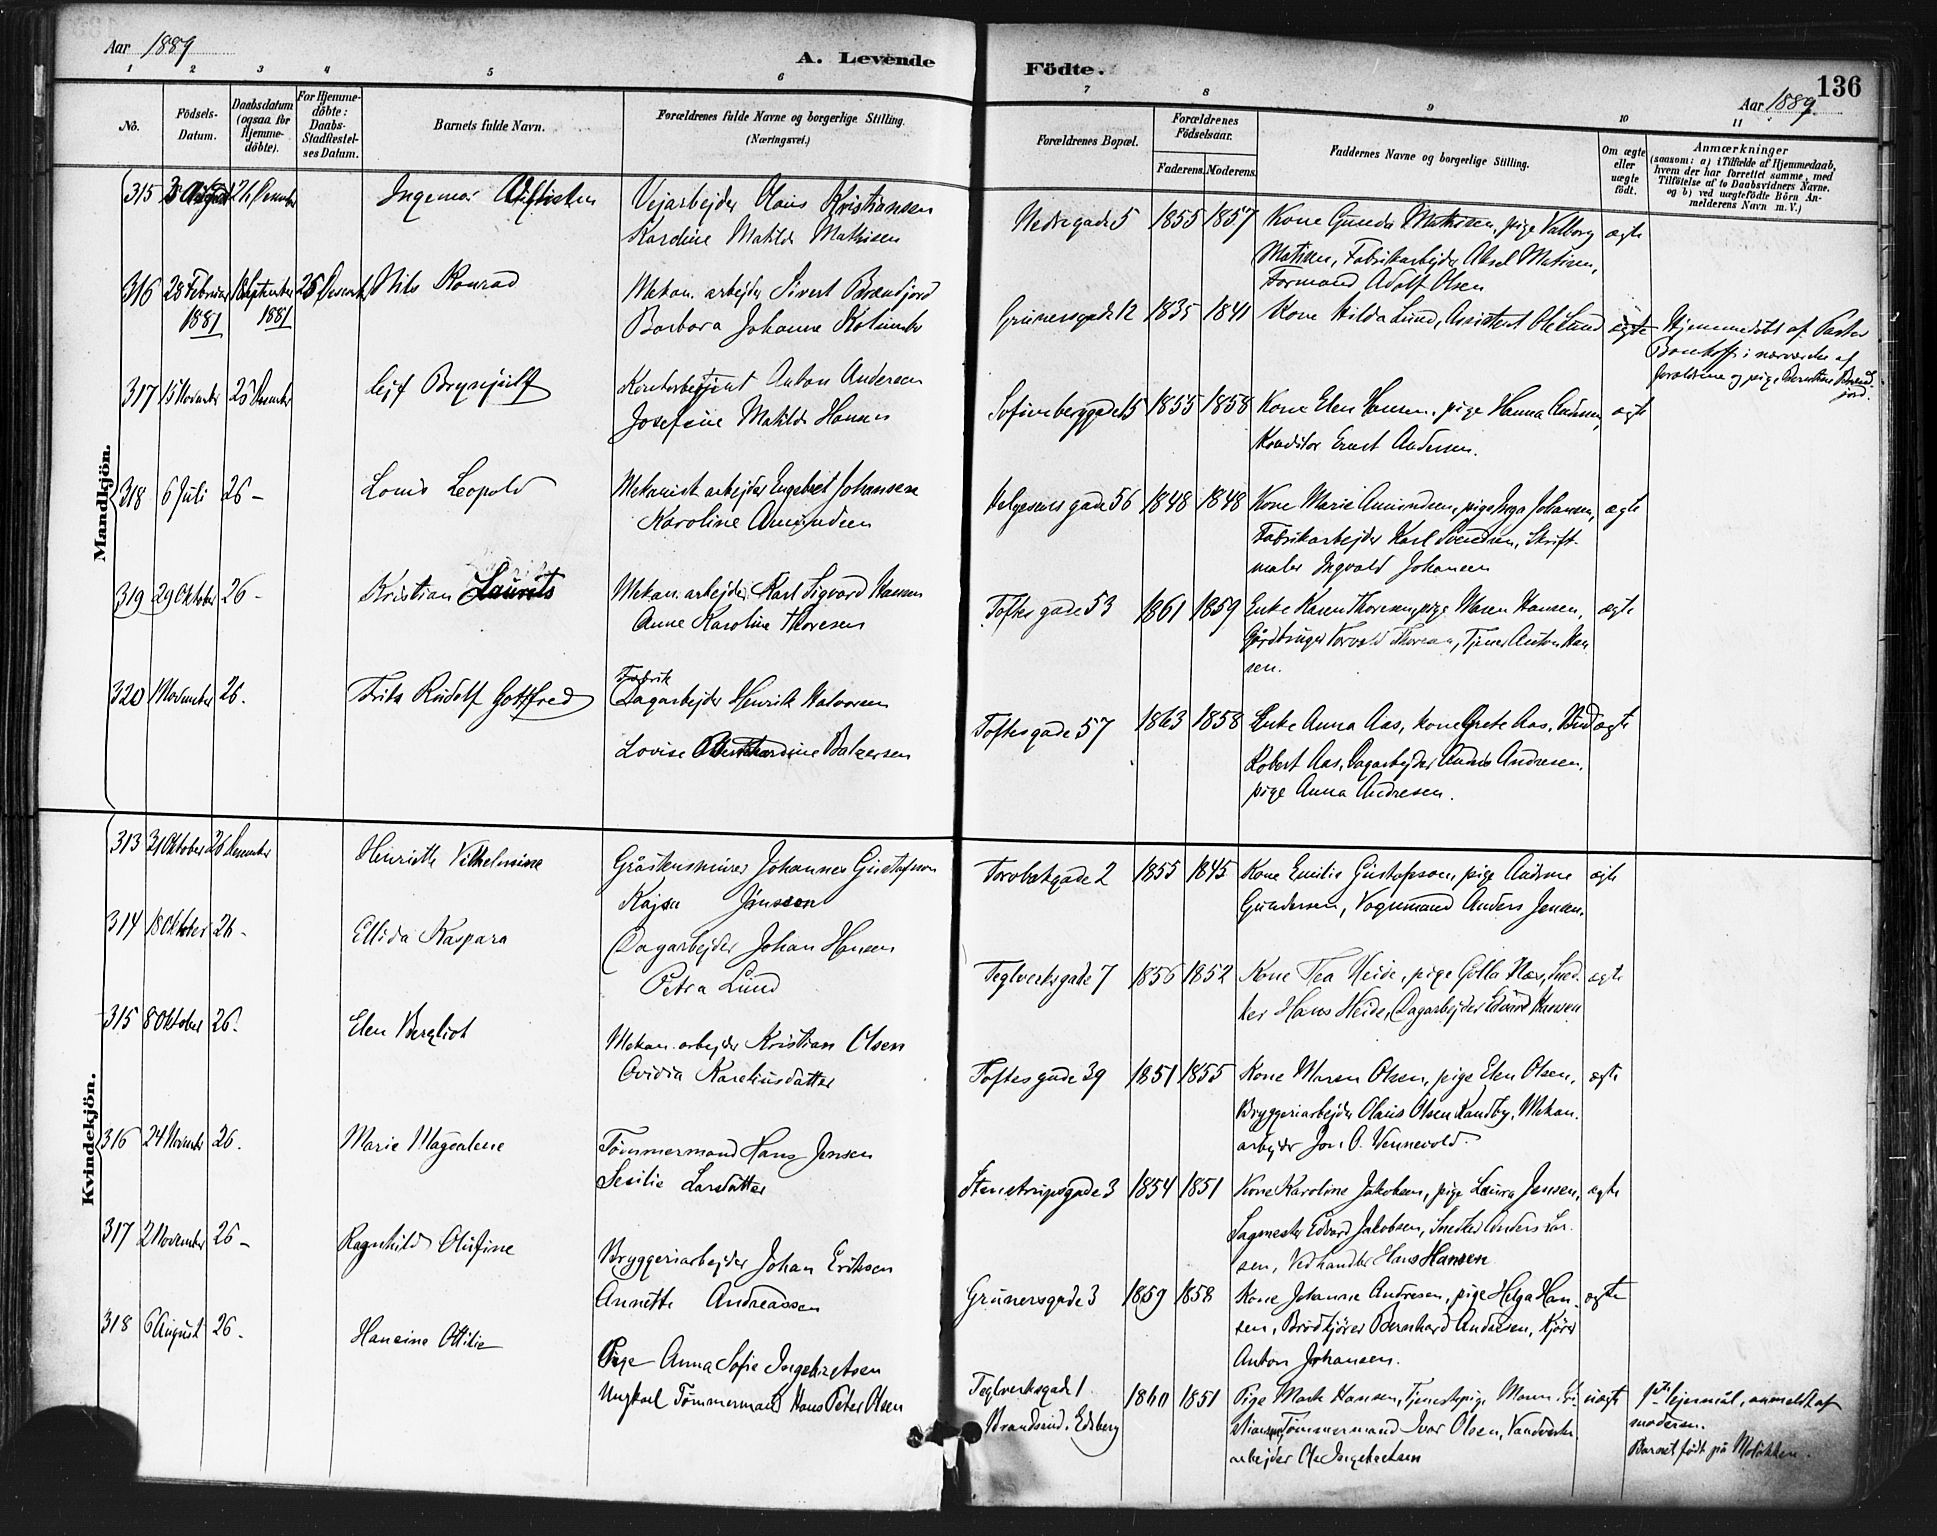 Aar 1889
A. Levende Födte.
136
Aar 1889.
1 2 3 4 5 6 7 8 9 10 11
No.
Födsels-Datum.
Daabsdatum (ogsaa for Hjemme-döbte).
For Hjemme-döbte: Daabs-Stadfæstel-ses Datum.
Barnets fulde Navn.
Forældrenes fulde Navne og borgerlige Stilling. (Næringsvei.)
Forældrenes Bopæl.
Forældrenes Födselsaar.
Faderens. Moderens.
Faddernes Navne og borgerlige Stilling.
Om ægte eller uægte födt.
Anmærkninger
(saasom: a) i Tilfælde af Hjemmedaab, hvem der har forrettet samme, med Tilföielse af to Daabsvidners Navne. og b) ved uægtefödte Börn An-melderens Navn m. V.)
Mandkjön.
315 Ingemar
Vejarbejder Olaus Kristiansen
Karoline Matilde Mathisen
Nedregade 5 1855 1857
Kone Gunda Mathisen, pige Valborg
Matisen, Fabrikarbejder Aksel Matisen,
Formand Adolf Olsen
ægte
316 28 Februar 1881 September 1881 25 Desemb. Nils Konrad
Mekan. arbejder Sivert Brændjord
Barbara Johanne
Grünersgade 12 1835 1841
Kone Hilda Lund, Assistent Ole Lund
ægte
Hjemmedøbt af Pastor
i nærværelse af
forældrene og pige Berntine Brænd-
jord.
317 15 November 26 Desember Lejf Brynjulf
Kontorbetjent Anton Andersen
Josefine Matilde Hansen
Sofienberggade 15 1855 1858
Kone Elen Hansen, pige Hanna Andersen,
Konditor Ernst Andersen.
ægte
318 6 Juli 26 - Louis Leopold
Mekanisk arbejder Engebret Johansen
Karoline Amundsen
Helgesens gade 56 1848 1848
Kone Marie Amundsen, pige Inga Johansen,
Fabrikarbejder Karl Svendsen, Skrift-
maler Ingvald Johansen
ægte
319 29 Oktober 26 - Kristian Laurits
Mekan. arbejder Karl Sigvard Hansen
Anne Karoline Thoresen
Toftes gade 53 1861 1859
Enke Karen Thoresen, pige Maren Hansen,
Gårdbruger Torvald Thoresen, Tjener Anton Han
sen.
ægte
320 1 November 26. Frits Rudolf Gottfred
Fabrik
Dagarbejder Henrik Halvorsen
Lovise Balzersen
Toftesgade 57 1863 1858
Enke Anna Aas, kone Grete Aas,
Robert Aas, Dagarbejder Andreas Andresen,
pige Anna Andresen.
ægte
Kvindekjön.
313 31 Oktober 26 Desember Henriette Vilhelmine
Gråstensmurer Johannes Gustafsson
Kajsa Jönsson
Torvbakgade 2 1855 1845
Kone Emilie Gustafsson, pige
Gundersen, Vognmand Anders Jensen.
ægte
314 18 Oktober 26 - Ellida Kaspara
Dagarbejder Johan Hansen
Petra Lund
Teglverksgade 7 1856 1852
Kone Tea Heide, pige Golla Næs, Sned-
ker Hans Heide, Dagarbejder Edvard Hansen
ægte
315 8 Oktober 26. Elen Bergliot
Mekan. arbejder Kristian Olsen
Ovidia Kareliusdatter
Toftes gade 39 1851 1855
Kone Maren Olsen, pige Elen Olsen,
Bryggeriarbejder Olaus Olsen Sandby, Mekan.
arbejder Jon O. Vennevold.
ægte
316 24 November 26. Marie Magdalene
Tømmermand Hans Jensen
Sesilie Larsdatter
Stenstrupsgade 3 1854 1851
Kone Karoline Jakobsen, pige Laura Jensen,
Sagmester Edvard Jakobsen, Snedker Anders Lar-
sen, Vedhandler Hans Hansen
ægte
317 2 November 26 - Ragnhild Olufine
Bryggeriarbejder Johan Eriksen
Annette Andreassen
Grünersgade 3 1859 1858
Kone Johanne Andresen, pige Helga Han-
sen, Brødkjører Bernhard Andersen, Kjører
Anton Johansen.
ægte
318 6 August 26. Hansine Ottilie
Pige Anna Sofie Ingebretsen
Ungkarl Tømmermand Hans Peter Olsen
Teglverksgade 1
Brandsrud, Edsberg
1860 1851
Pige Marte Hansen, Tjenestepige Maren
Tømmermand Ivar Olsen, Vandverks
arbejder Ole Ingebretsen
uægte
1ste lejermål, anmeldt af
moderen.
Barnet født på Moløkken.